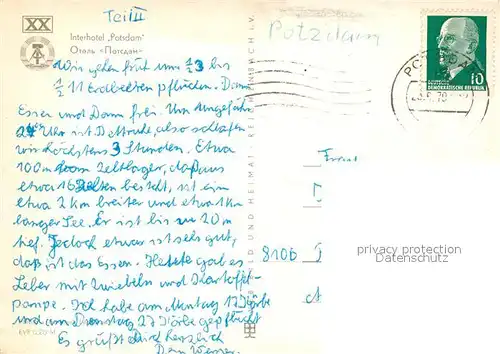 Teil II
XX
Potzdam
Interhotel „Potsdam"
Отель «Потсдам»
Wir gehen früh um 1/2 3 bis
1/2 11 Erdbeeren pflücken. Dann
Essen und Dann frei. Um ungefähr
Uhr ist Bettruhe, also schlafen
wir höchstens 3 Stunden. Etwa
100m vom Zeltlager, daß aus
etwa 16 Zelten besteht, ist ein
etwa 2 km breiter und etwa 1 km
langer See. Er ist bis zu 20 m
tief. Jedoch etwas ist sehr gut,
daß ist das Essen. Heute gab es
Leber mit Zwiebeln und Kartoffel-
pampe. Ich habe am Montag 17 Körbe
und am Dienstag 27 Körbe gepflückt
Es grüßt Dich herzlich
Dein Werner
BILD UND HEIMAT REICHENBACH I. V.
10
DEUTSCHE
DEMOKRATISCHE REPUBLIK
8106
privacy protection
ansichtskartenversand.com